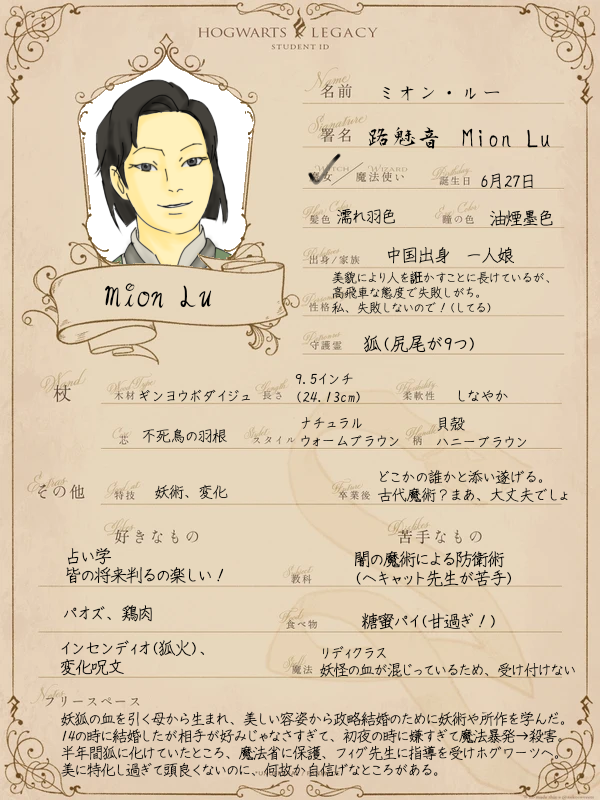 HOGWARTS LEGACY
STUDENT ID
Name
名前 ミオン・ルー
Signature
署名 路魅音 Mion Lu
WITCH WIZARD
魔女／魔法使い
Birthday
誕生日 6月27日
Hair Color
髪色 濡れ羽色
Eye Color
瞳の色 油煙墨色
出身/家族 中国出身 一人娘
美貌により人を誑かすことに長けているが、
高飛車な態度で失敗しがち。
性格 私、失敗しないので！(してる)
Patronus
守護霊 狐(尻尾が9つ)
Mion Lu
Wand
杖
Wand Type
木材 ギンヨウボダイジュ
Length
長さ 9.5インチ
(24.13cm)
Flexibility
柔軟性 しなやか
Core
芯 不死鳥の羽根
Style
スタイル ナチュラル
ウォームブラウン
Handle
柄 貝殻
ハニーブラウン
Extras
その他
Good at
特技 妖術、変化
Future
卒業後 どこかの誰かと添い遂げる。
古代魔術？まあ、大丈夫でしょ
Likes
好きなもの
Dislikes
苦手なもの
占い学
皆の将来判るの楽しい！
Subject
教科
闇の魔術による防衛術
(ヘキャット先生が苦手)
パオズ、鶏肉
Food
食べ物
糖蜜パイ(甘過ぎ！)
インセンディオ(狐火)、
変化呪文
Spell
魔法
リディクラス
妖怪の血が混じっているため、受け付けない
Notes
フリースペース
妖狐の血を引く母から生まれ、美しい容姿から政略結婚のために妖術や所作を学んだ。
14の時に結婚したが相手が好みじゃなさすぎて、初夜の時に嫌すぎて魔法暴発→殺害。
半年間狐に化けていたところ、魔法省に保護、フィグ先生に指導を受けホグワーツへ。
美に特化し過ぎて頭良くないのに、何故か自信げなところがある。